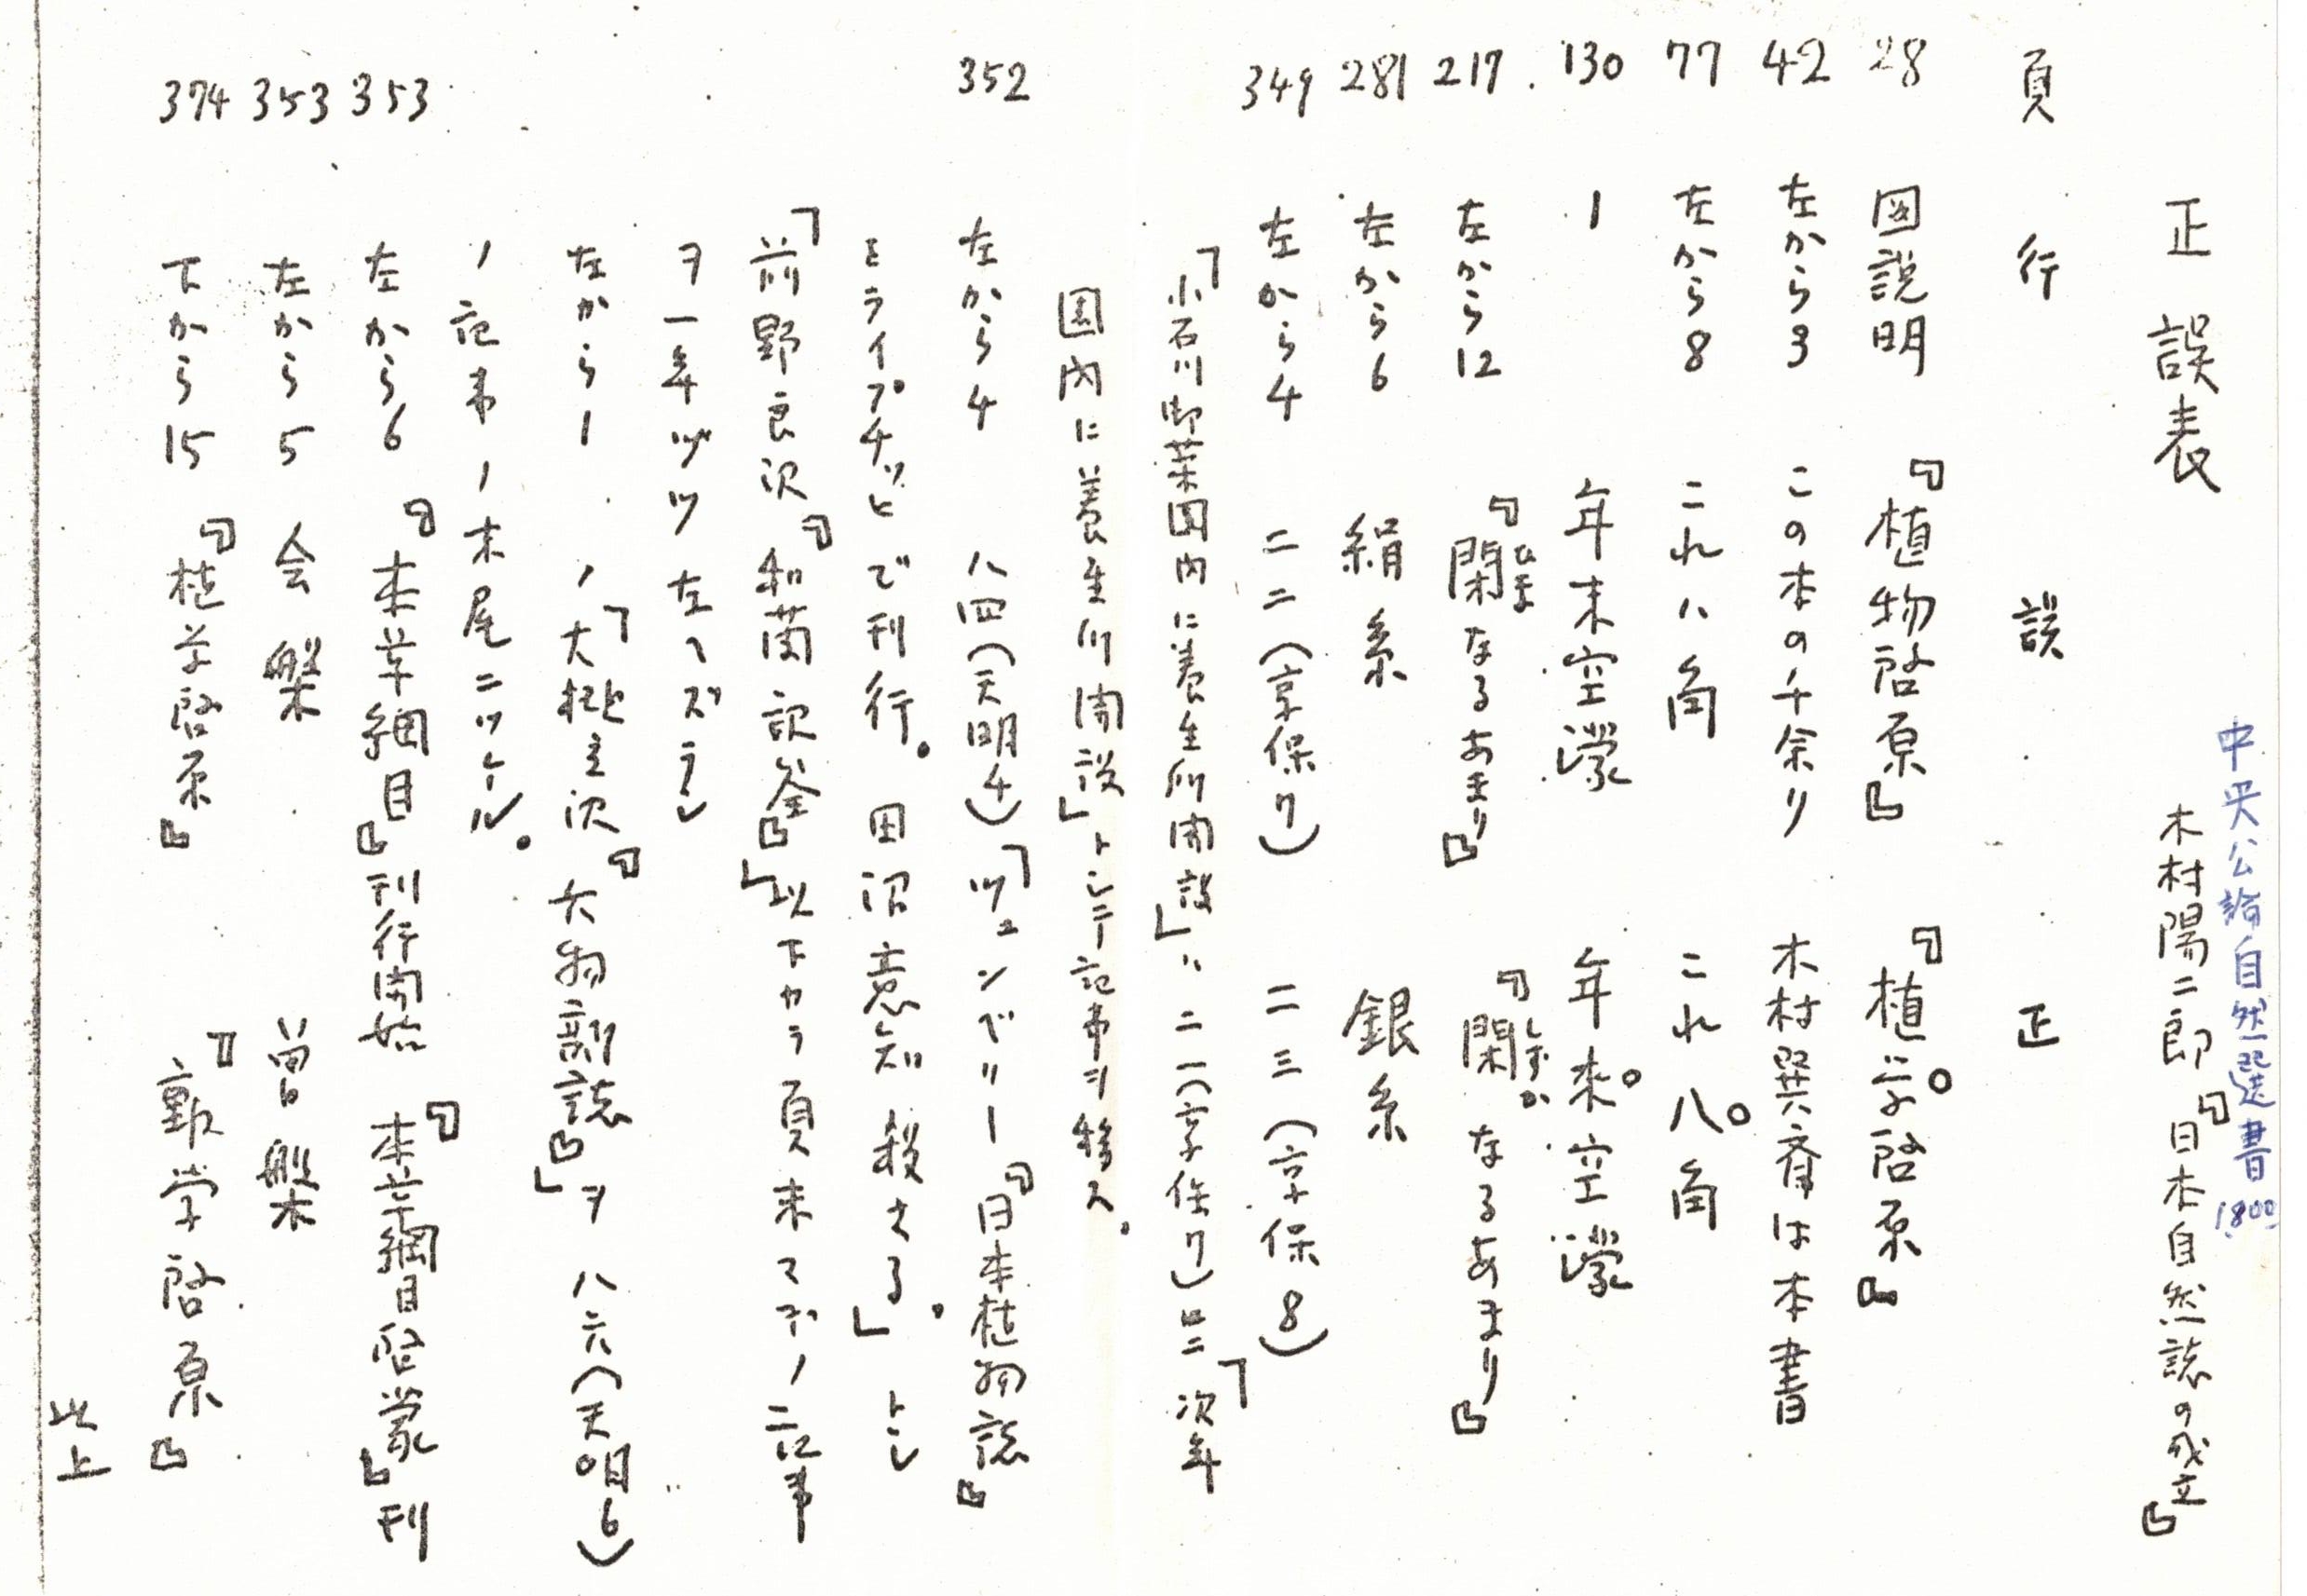 中央公論自然選書 1800
正誤表 木村陽二郎『日本自然誌の成立』
頁 行 誤 正
28 図説明 『植物啓原』 『植学啓原』
42 左から3 この本の千余り 木村巽斎は本書
77 左から8 これハ角 これ八角
130 1 年末空濛 年来空濛
217 左から12 『閑なるあまり』 『閑なるあまり』
ひま しずか
281 左から6 絹糸 銀糸
349 左から4 二二(享保7) 二三(享保8)
「小石川御薬園内に養生所開設」ハ二二(享保7) ニ「次年
園内に養生所開設」トシテ記事ヲ移ス。
352 左から4 八四(天明4)「ツュンベリー『日本植物誌』
をライプチッヒで刊行。田沼意知殺さる。」トシ
「前野良沢『和蘭訳筌』」以下カラ頁末マデノ記事
ヲ一年ヅツ左ヘズラシ
左から1ノ「大槻玄沢『六物新誌』」ヲ八六(天明6)
ノ記事ノ末尾ニツケル。
353 左から6 『本草綱目』刊行開始 『本草綱目啓蒙』刊
353 左から5 会槃 曽槃
374 下から15 『植学啓原』 『動学啓原』
以上